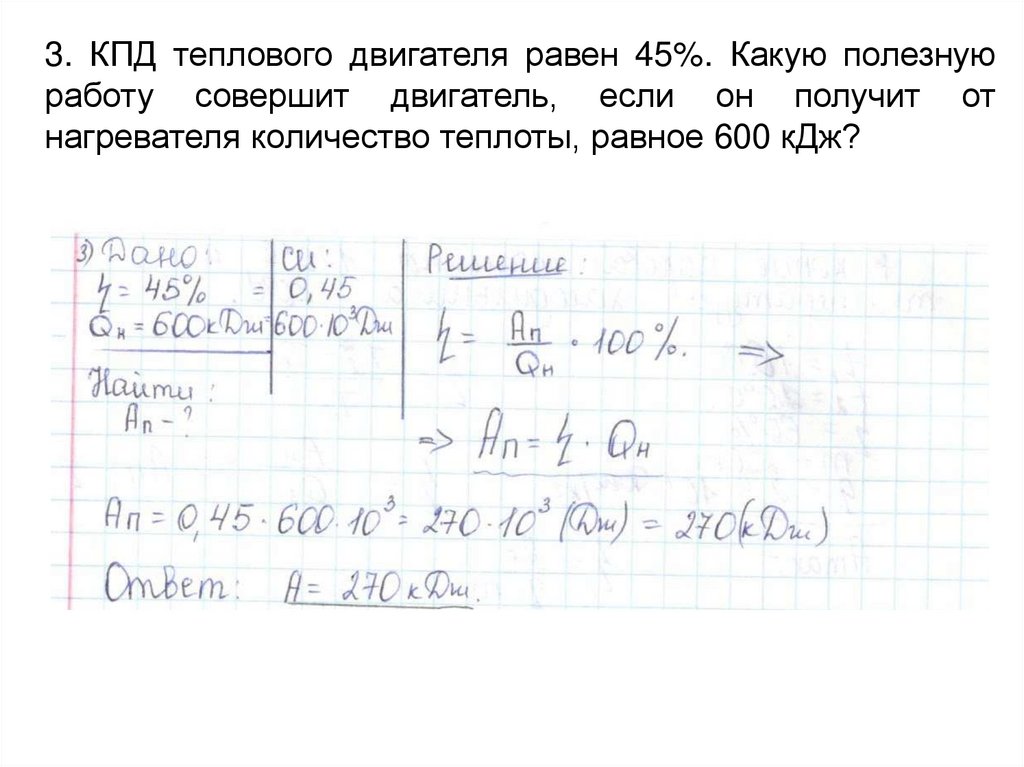 3. КПД теплового двигателя равен 45%. Какую полезную
работу совершит двигатель, если он получит от
нагревателя количество теплоты, равное 600 кДж?
3) Дано: СИ: Решение:
η = 45% = 0,45
Qн = 600 кДж = 600·10³ Дж
η = Aп/Qн · 100%. =>
Найти:
Aп - ?
=> Aп = η · Qн
Aп = 0,45 · 600 · 10³ = 270 · 10³ (Дж) = 270 (кДж)
Ответ: A = 270 кДж.